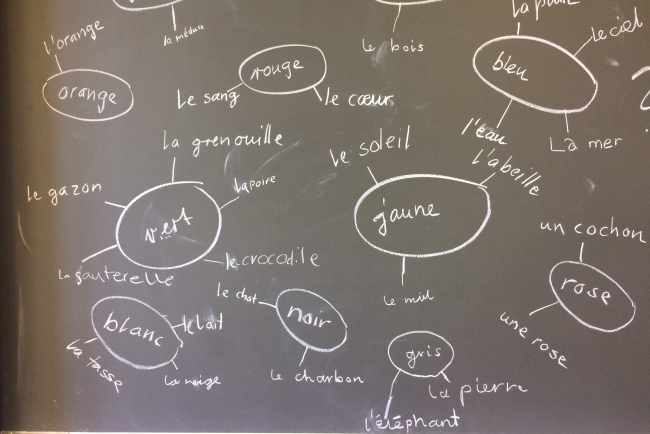 la méduse
le bois
la pluie
le ciel
bleu
l'eau
La mer
l'orange
orange
rouge
le sang
le cœur
la grenouille
le gazon
la poire
vert
le crocodile
la sauterelle
le soleil
l'abeille
jaune
le miel
un cochon
rose
une rose
blanc
le lait
la tasse
la neige
le chat
noir
le charbon
gris
la pierre
l'éléphant